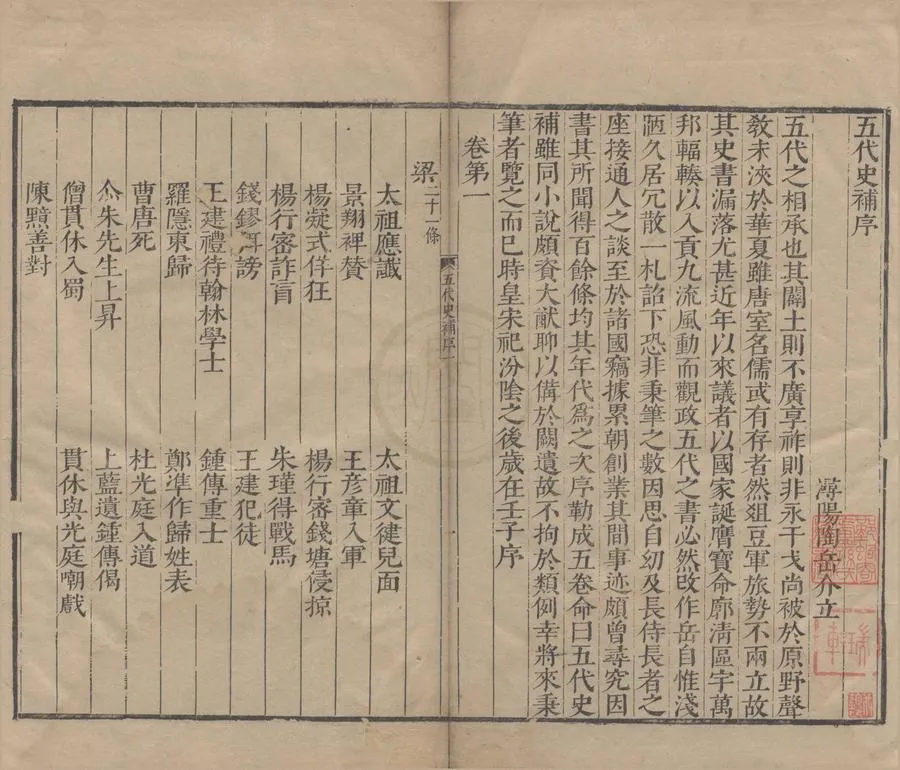 五代史補序
潯陽陶岳介立
五代之相承也其闢土則不廣享祚則非永干戈尚被於原野聲
敎未浹於華夏雖唐室名儒或有存者然俎豆軍旅勢不兩立故
其史書漏落尤甚近年以來議者以國家誕膺寶命廓淸區宇萬
邦輻輳以入貢九流風動而觀政五代之書必然改作岳自惟淺
陋久居冗散一札詔下恐非秉筆之數因思自幼及長侍長者之
座接通人之談至於諸國竊據累朝創業其間事迹頗曾尋究因
書其所聞得百餘條均其年代爲之次序勒成五卷命曰五代史
補雖同小說頗資大猷聊以備於闕遺故不拘於類例幸將來秉
筆者覽之而已時皇宋祀汾陰之後歲在壬子序
卷第一
五代史補序
一
梁二十一條
太祖應讖
太祖文徤兒面
景翔裨贊
王彥章入軍
楊凝式佯狂
楊行密錢塘侵掠
楊行密詐盲
朱瑾得戰馬
錢鏐弭謗
王建犯徒
王建禮待翰林學士
鍾傳重士
羅隱東歸
鄭準作歸姓表
曹唐死
杜光庭入道
尒朱先生上昇
上藍遺鍾傳偈
僧貫休入蜀
貫休與光庭嘲戲
陳黯善對